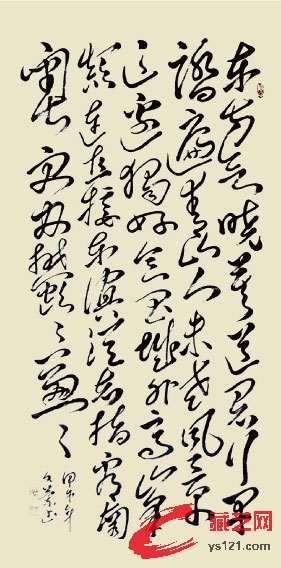 东方欲晓莫道君行早
踏遍青山人未老风景
这边独好会昌城外高峰
颠连直接东溟战士指看南
粤更加郁々葱々
甲午年
藏字网
ys121.com